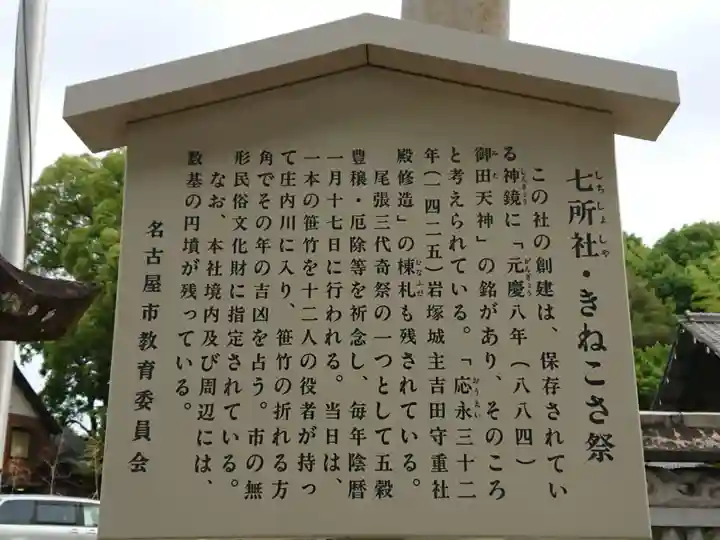 七所社・きねこさ祭
しちしょしゃ
この社の創建は、保存されてい
る神鏡に「元慶八年(八八四)
しんきょう
がんぎょう
御田天神」の銘があり、そのころ
みた
と考えられている。「応永三十二
おうえい
年(一四二五)岩塚城主吉田守重社
殿修造」の棟札も残されている。
むなふだ
尾張三代奇祭の一つとして五穀
豊穣・厄除等を祈念し、毎年陰暦
一月十七日に行われる。当日は、
一本の笹竹を十二人の役者が持っ
て庄内川に入り、笹竹の折れる方
角でその年の吉凶を占う。市の無
形民俗文化財に指定されている。
なお、本社境内及び周辺には、
数基の円墳が残っている。
名古屋市教育委員会